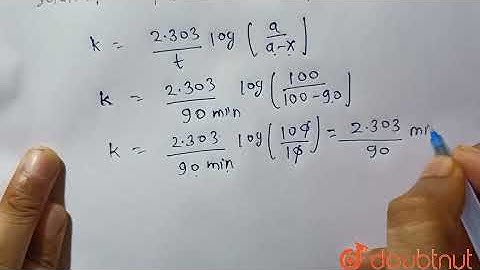 k = 2.303/t log (a/a-x)
k = 2.303/90 min log (100/100-90)
k = 2.303/90 min log (100/10) = 2.303/90 mi
doubtnut